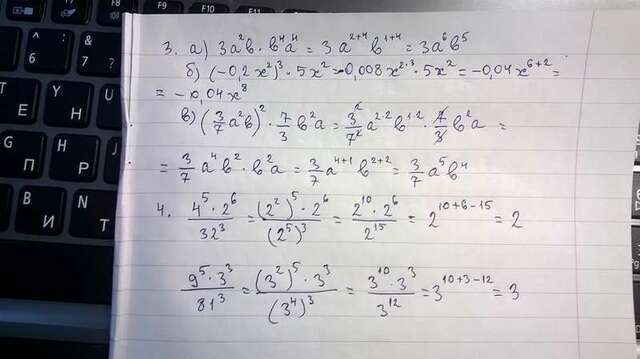 3. а) 3a²b · b⁴a⁴ = 3a²⁺⁴b¹⁺⁴ = 3a⁶b⁵
б) (-0,2x²)³ · 5x² = -0,008x²·³ · 5x² = -0,04x⁶⁺² =
= -0,04x⁸
в) (3/7 a²b)² · 7/3 b²a = 3²/7² a²·²b¹·² · 7/3 b²a =
= 3/7 a⁴b² · b²a = 3/7 a⁴⁺¹b²⁺² = 3/7 a⁵b⁴
4. 4⁵ · 2⁶ / 32³ = (2²)⁵ · 2⁶ / (2⁵)³ = 2¹⁰ · 2⁶ / 2¹⁵ = 2¹⁰⁺⁶⁻¹⁵ = 2
9⁵ · 3³ / 81³ = (3²)⁵ · 3³ / (3⁴)³ = 3¹⁰ · 3³ / 3¹² = 3¹⁰⁺³⁻¹² = 3